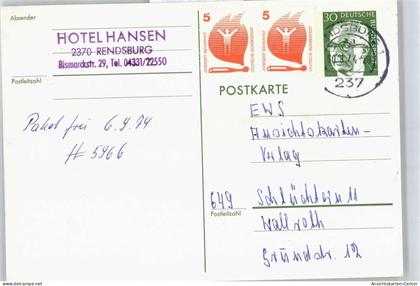 Absender
HOTEL HANSEN
2370 RENDSBURG
Bismarckstr. 29, Tel. 04331/22550
Postleitzahl
Paket frei 6.9.74
# 5966
5
5
30
DEUTSCHE
237
POSTKARTE
EWS
Ansichtskarten-
Verlag
649 Schlüchtern 11
Postleitzahl
Wallroth
Grundstr. 12
Ansichtskarten-Center